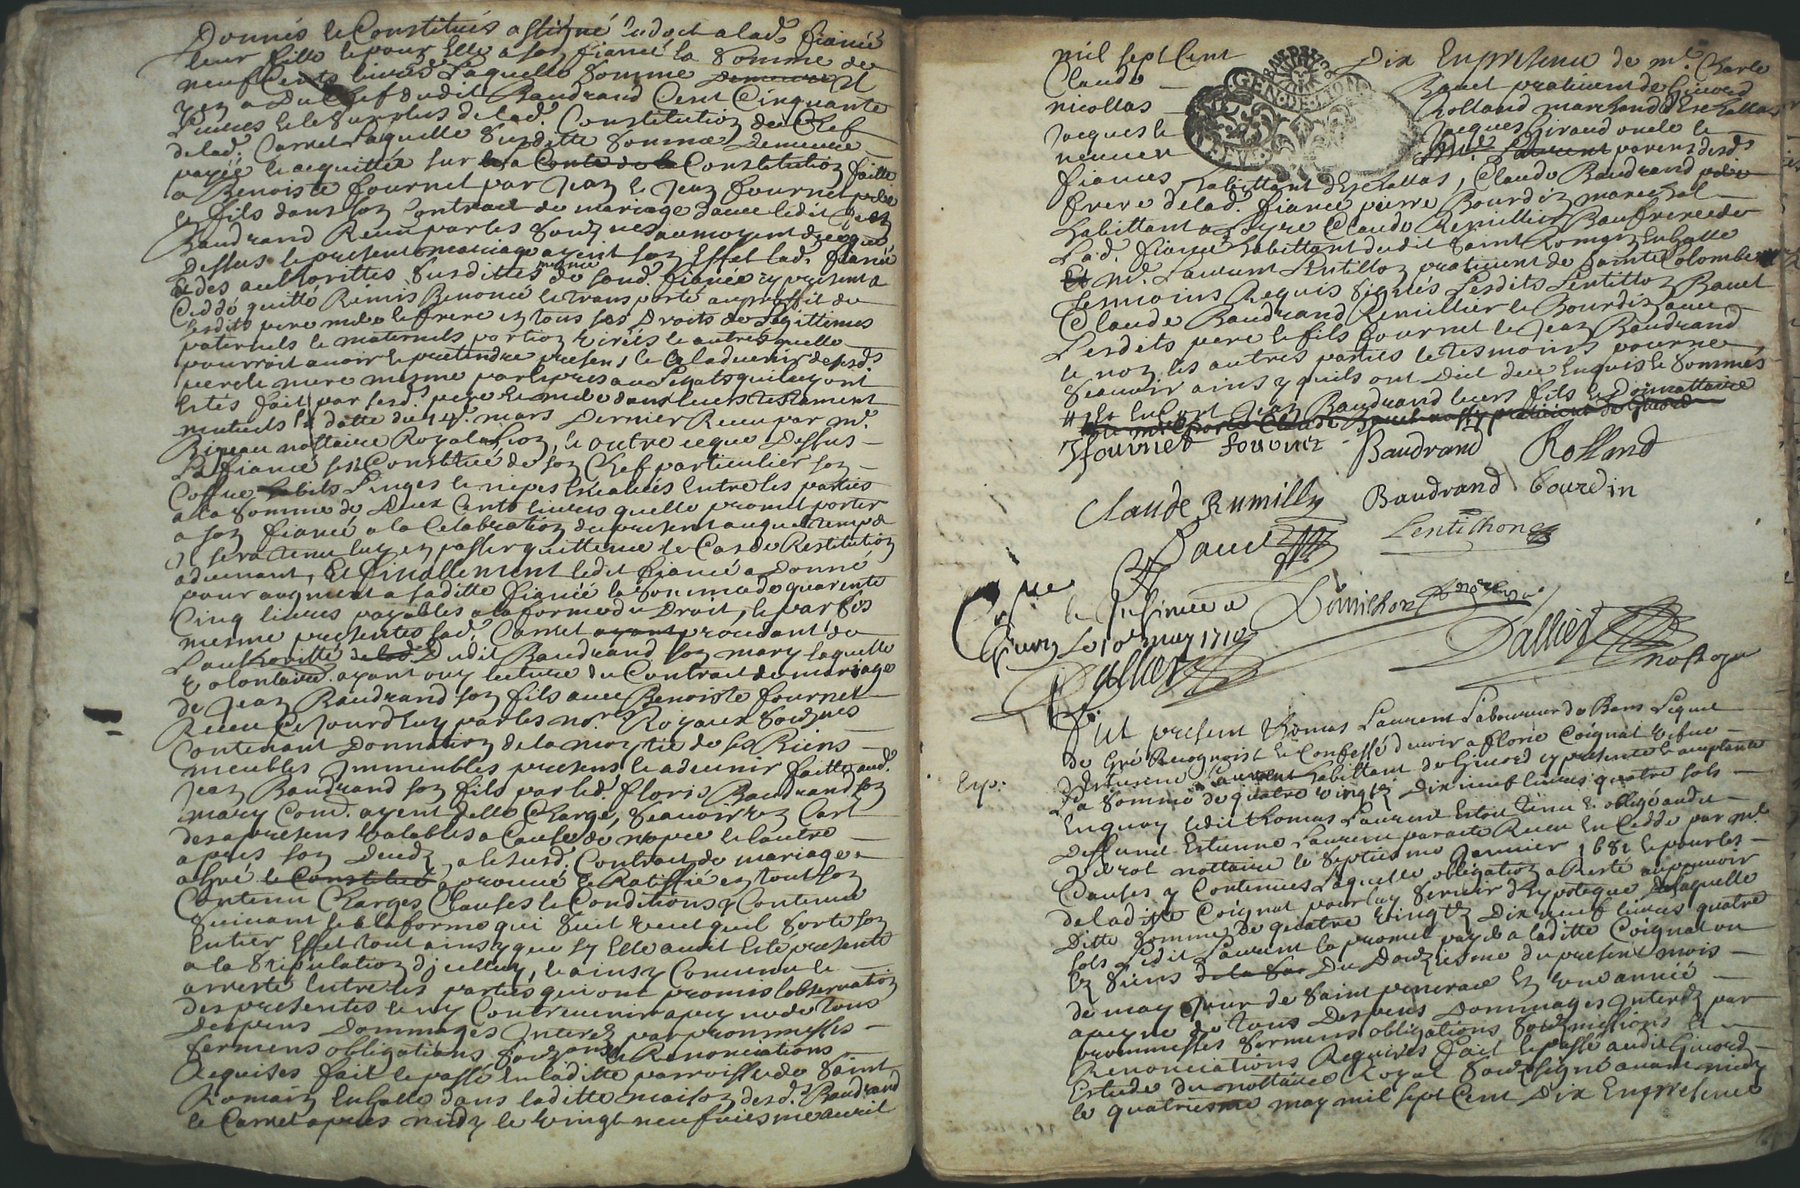 Donnés et Constitués assigné en dot a lad. fiancée
leur fille et pour Elle a son fiancé la Somme de
neuf Cents livres Laquelle Somme
du Chef dudit Baudrand Cent Cinquante
Livres et le Surplus de lad. Constitution du Chef
de lad. Carret Laquelle Susditte Somme Demeure
payée et acquittée sur la Constitution faitte
a Benoiste fournet par Jean et Jean fournet pere
et fils dans son Contract de mariage d'avec ledit Jean
Baudrand Receu par les Soubz nes au moyen de ce que
Dessus le present mariage ayent son Effet lad. fiancée
des authorittés Susdittes mesme de sond. fiancé icy present a
Ceddé quitté Remis Renoncé et transporté au proffit de
Sesdits pere mere et frere en tous ses Droits de Legittimes
paternels et maternels portion viriles et autres quelle
pourroit avoir et pretendre present et a ladvenir desesds
pere et mere mesme par les pres aux Legats qui luy ont
Estés fait par sesd. pere et mere dans leurs testament
mutuels a datte du 14e mars Dernier Receu par Me.
notaire Royal a Gion, et outre ce que Dessus
La fiancée sest Constitué de son Chef particulier son
Coffre habits Linges et nipes Evalués Entre les parties
a la Somme de Deux Cents livres quelle promet porter
a son fiancé a la Celebration du present auquel temps
il sera tenu luy en passer quittance et Cas de Restitution
advenant, Et finallement ledit fiancé a Donné
pour augment a saditte fiancée la Somme de quarente
Cinq livres payables a la forme du Droit, et par Ses
mesme presentes lad. Carret procedant de
Lauthoritté dudit Baudrand son mary laquelle
volontaire ayant ouy lecture du Contract de mariage
de Jean Baudrand son fils avec Benoiste fournet
Receu Ce Jourdhuy par les nores Royaux Soubz nes
Contenant Donnation de la moytié de ses Biens
meubles Immeubles presens et advenir faitte aud.
Jean Baudrand son fils par led. florie Baudrand son
mary Comd. ayent delle Charge, Scavoir un Cart
des apresens valables a Cause de nopce et lautre
apres son Deceds, a lesusd. Contract de mariage
agreé aprouvé et Ratiffié en tout son
Contenu Charges Clauses et Conditions y Contenue
Suivant et a la forme qui Suit veut quil Sorte son
Entier Effet tout ainsy que sy Elle avoit Esté presente
a la Stipulation dicelluy, et ainsy Convenu et
arresté Entre les parties qui ont promis lobservation
des presentes et ny Contrevenir a peyne de Tous
Despens Dommages Interets par prommesses
Sermens obligations Soubz ons et Renonciations
Requises fait et passé En laditte parroisse de Saint
Romain En galle dans laditte maison desd. Baudrand
et Carret apres midy le vingt neufviesme avril
mil sept Cent Dix En presence de Me. Charle
Claude Bauet praticient de Givord
nicollas Rolland marchand d'Eschallas
Jacques le Jacques Giraud oncle et
nepveu parens desds
fiances habittant d'Eschallas, Claude Baudrand
frere de lad. fiancée pierre Bourdin marechal
habittant a Claude Remillier Beaufrere de
Lad. fiancée habittant dudit Saint Romain En Galle
Et Me. Laurent Lentillon praticient de Sainte Colombe
tesmoins Requis Signés Lesdits Lentillon Bauet
Claude Baudrand Remillier et Bourdin avec
Lesdits pere et fils fournet et Jean Baudrand
et non les autres parties et tesmoins pour ne
Scavoir ainsy quils ont Dict de ce Enquis et Sommés
Jean Baudrand leurs fils et Donnattaire
J fournet fournet Baudrand Rolland
Claude Rumilly Baudrand bourdin
Bauet Lentilhon
Con lle
et Insinuée a Lentilhon
Givors Le 10e may 1710
Dallier Dallier
no Royal
Fut present Thomas Laurent Laboureur de Bans Lequel
de Gré Recognoist et Confesse devoir a florie Coignat vefve
Exp.
d'Estienne Laurent habittant de Givord cy presente et acceptante
La Somme de quatre vingts Dix neuf livres quatre sols
En quoy ledit Thomas Laurent Estoit tenu et obligé audit
Deffunct Estienne Laurent par acte Receu En Cedde par Me
notaire le Septiesme Janvier 1681 et pour les
Causes y Contenues Laquelle obligation a Resté au pouvoir
de laditte Coignat pour luy Servir d'Hypoteque Laquelle
Ditte Somme de quatre vingts Dix neuf livres quatre
sols Ledit Laurent la promet payer a laditte Coignat ou
Ez Siens Du Douziesme du present mois
de may Jour de Saint pancrace En une année
a peyne de tous Despens Dommages Interets par
prommesses Sermens obligations Soubzmissions et
Renonciations Requises fait et passé audit Givord
Estude du nottaire Royal Soubz signé avant midy
le quatriesme may mil sept Cent Dix En presence